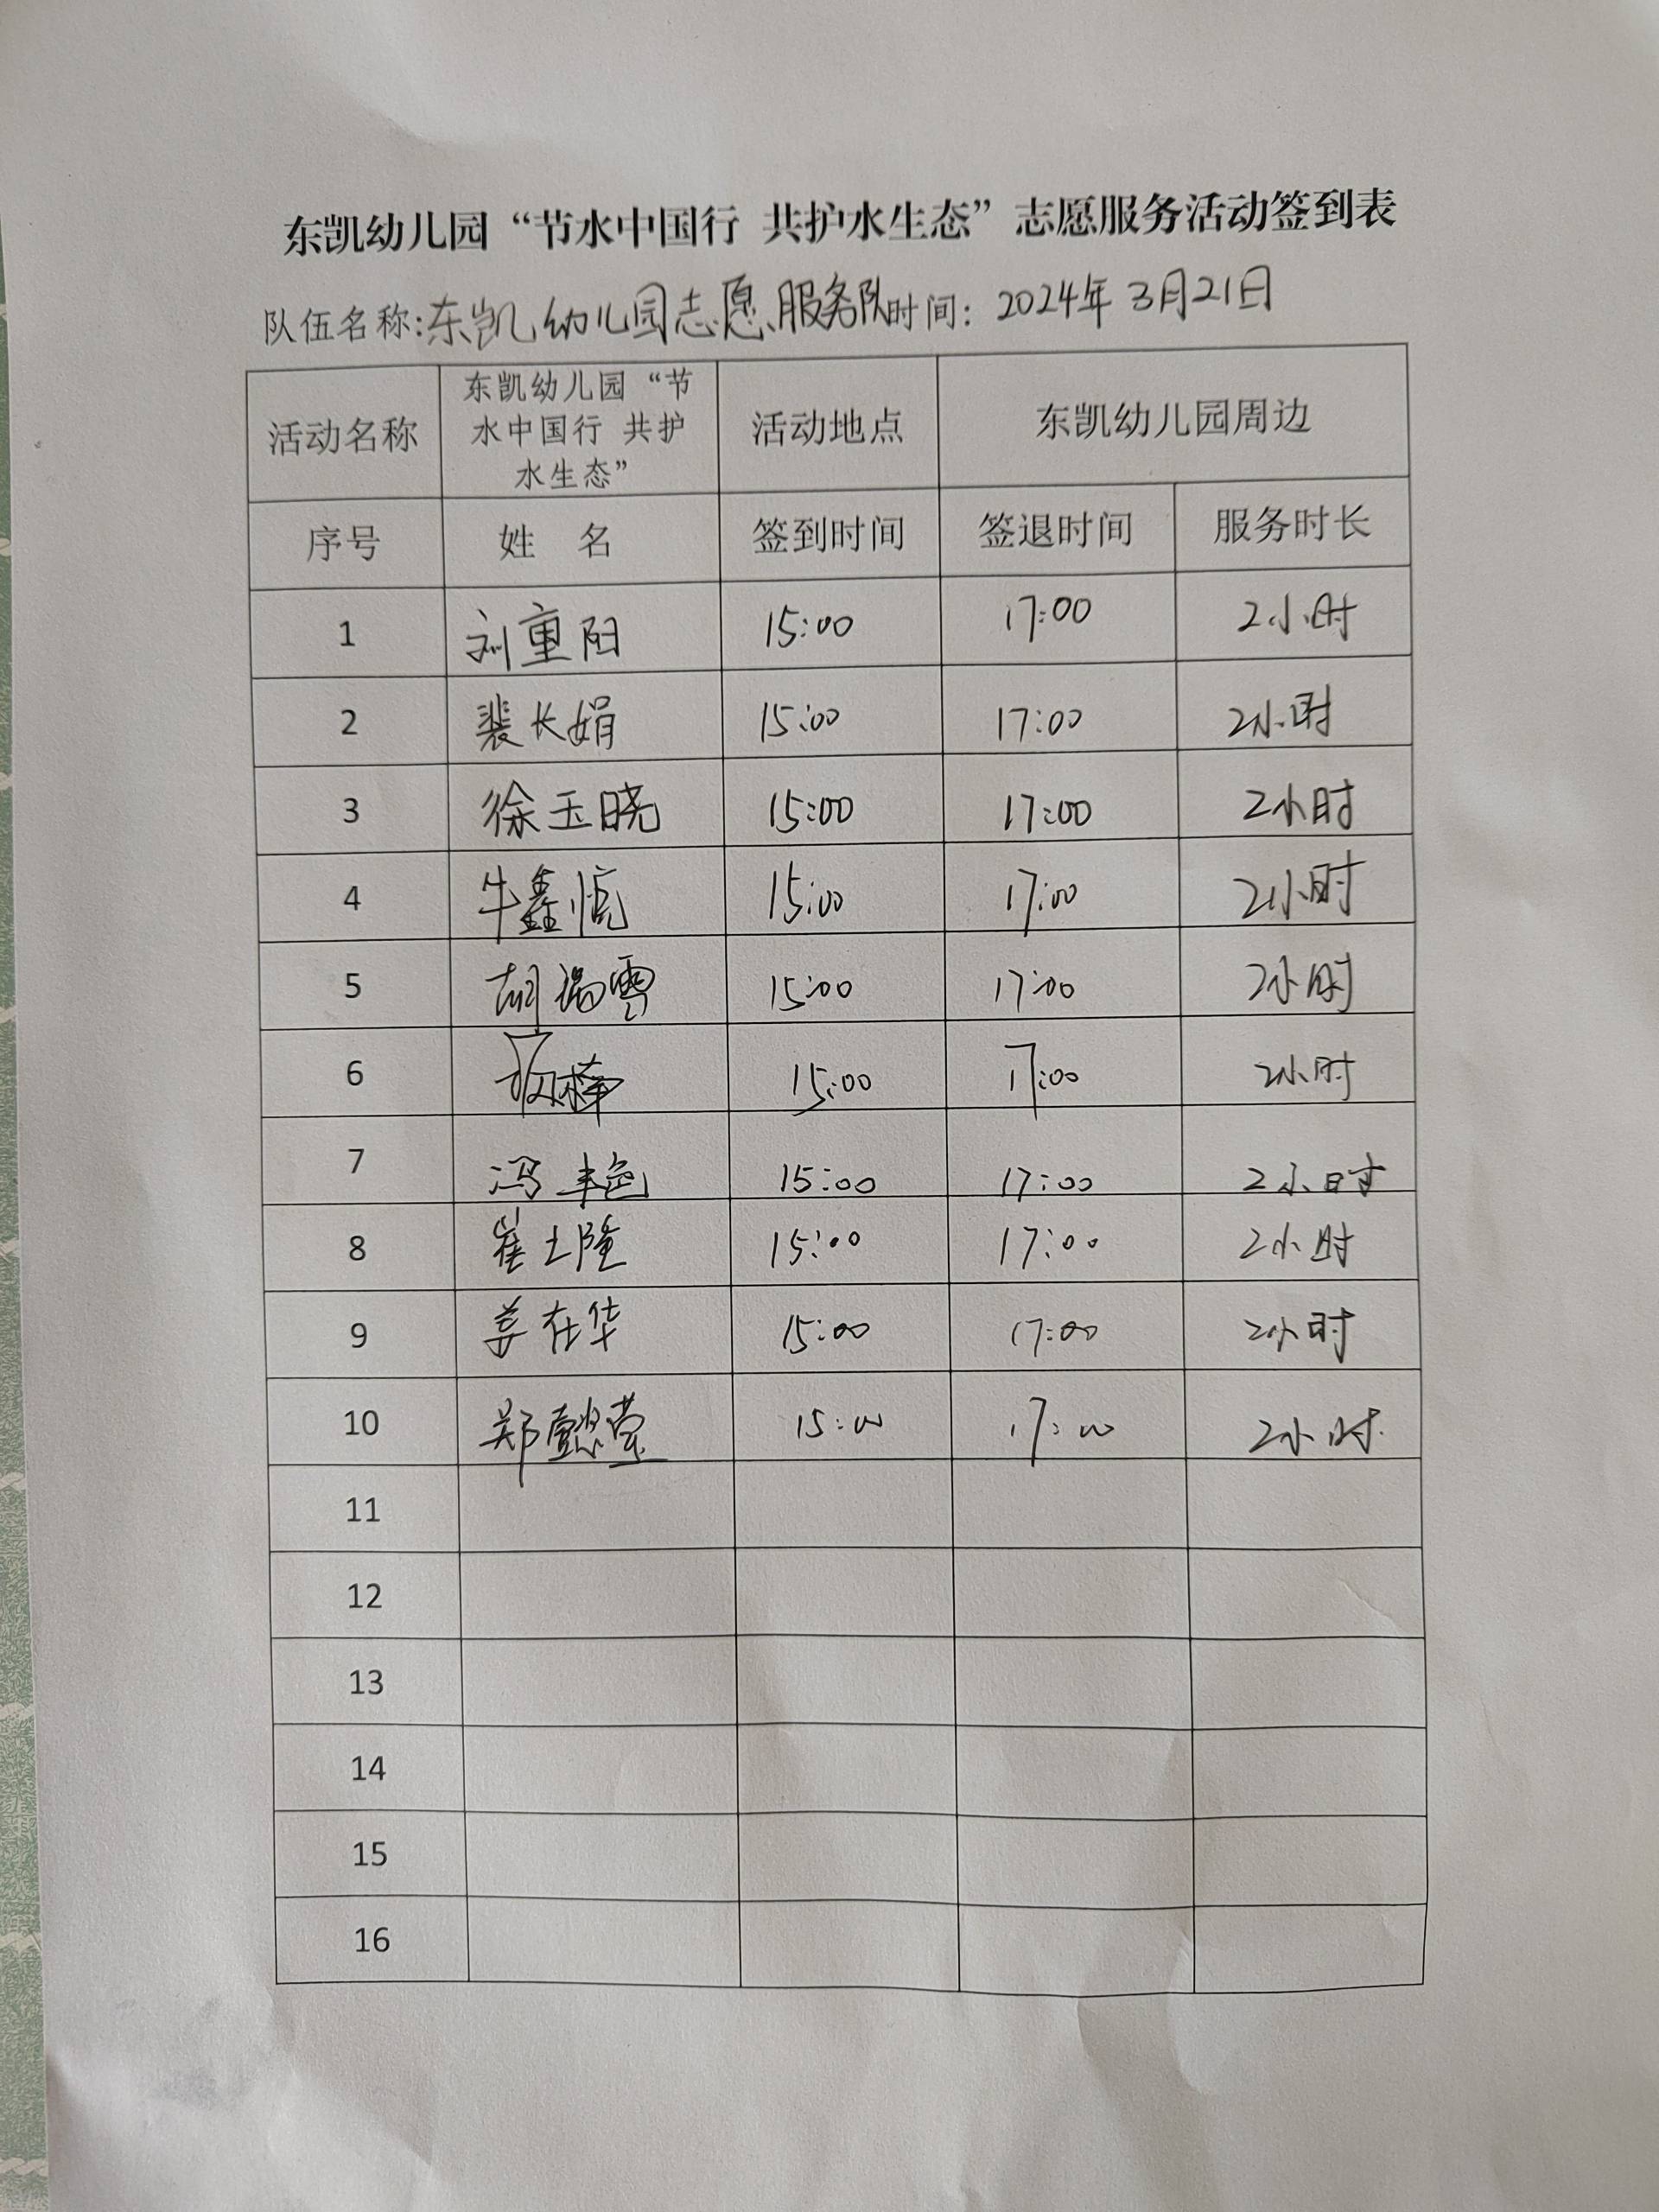 东凯幼儿园“节水中国行 共护水生态”志愿服务活动签到表
队伍名称:东凯幼儿园志愿服务队时间：2024年3月21日
活动名称 东凯幼儿园“节水中国行 共护水生态” 活动地点 东凯幼儿园周边
序号 姓 名 签到时间 签退时间 服务时长
1 刘重阳 15:00 17:00 2小时
2 裴长娟 15:00 17:00 2小时
3 徐玉晓 15:00 17:00 2小时
4 牛鑫恒 15:00 17:00 2小时
5 胡瑞雪 15:00 17:00 2小时
6 15:00 17:00 2小时
7 冯丰色 15:00 17:00 2小时
8 崔士隆 15:00 17:00 2小时
9 姜在华 15:00 17:00 2小时
10 郑懿莹 15:00 17:00 2小时
11
12
13
14
15
16